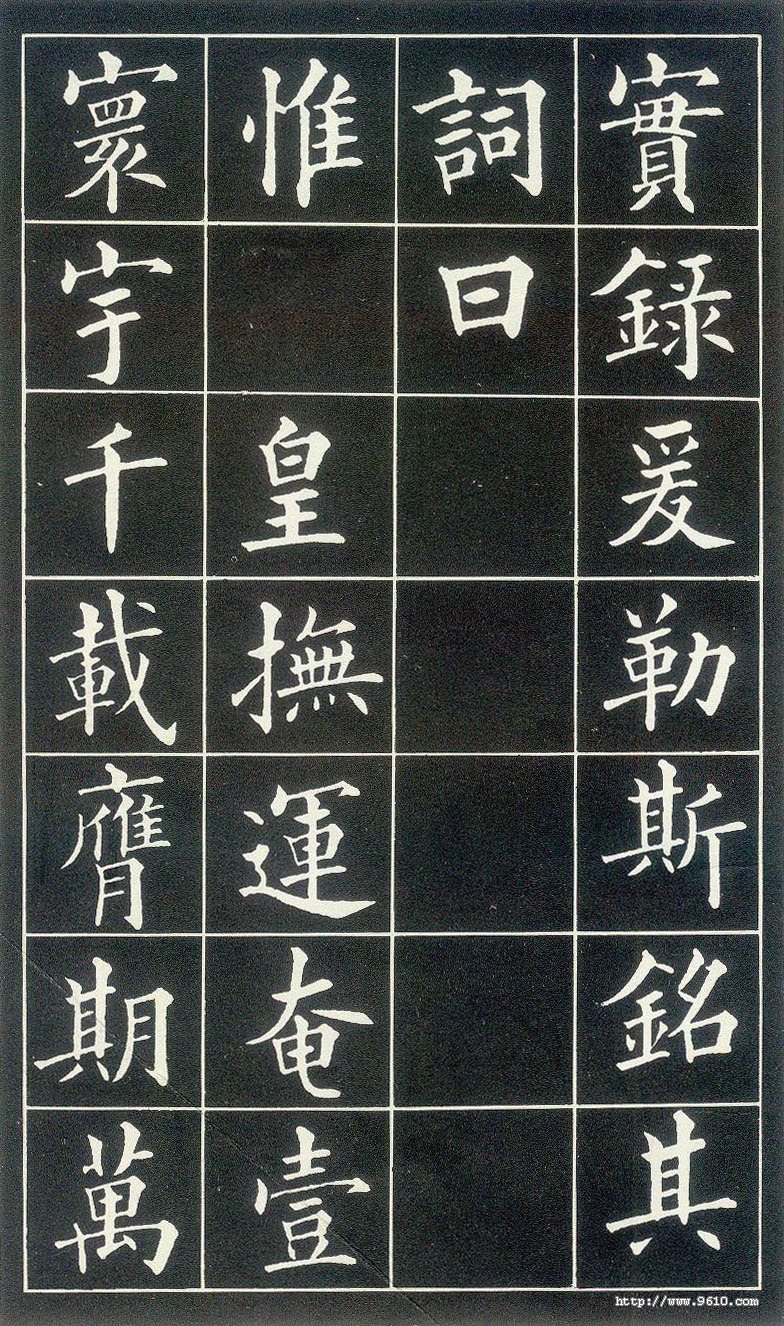 實錄爰勒斯銘其
詞曰
惟 皇撫運奄壹
寰宇千載膺期萬
http://www.9610.com